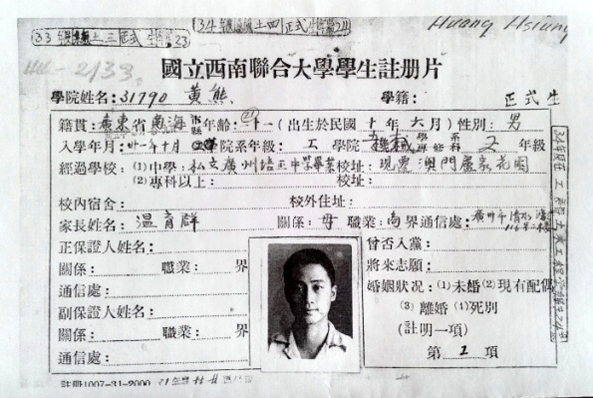 Huang Hsiung
國立西南聯合大學學生註册片
學院姓名：31790 黃熊 學籍： 正式生
籍貫：廣東省南海縣 年齡： （出生於民國十年六月）性別：男
入學年月： 年十月 院系年級：工學院機械學系 2 年級
經過學校：(1)中學：私立廣州培正中學畢業 校址：現遷澳門盧家花園
(2)專科以上： 校址：
校內宿舍： 校外住址：
家長姓名：溫育群 關係：母 職業：商界 通信處：廣州市
正保證人姓名：
關係： 職業： 界
通信處：
副保證人姓名：
關係： 職業： 界
通信處：
曾否入黨：
將來志願：
婚姻狀况：(1)未婚(2)現有配偶
(3)離婚(4)死別
(註明一項)
第 1 項
註冊1007-31-2000